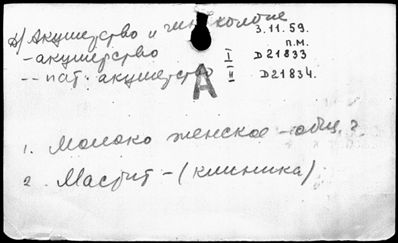 д) Акушерство и гинекология 3.11.59.
п.м.
-акушерство I D21833
-- пат. акушерство II D21834.
А
1. Молоко женское -общ. ?
2. Мастит - (клиника)